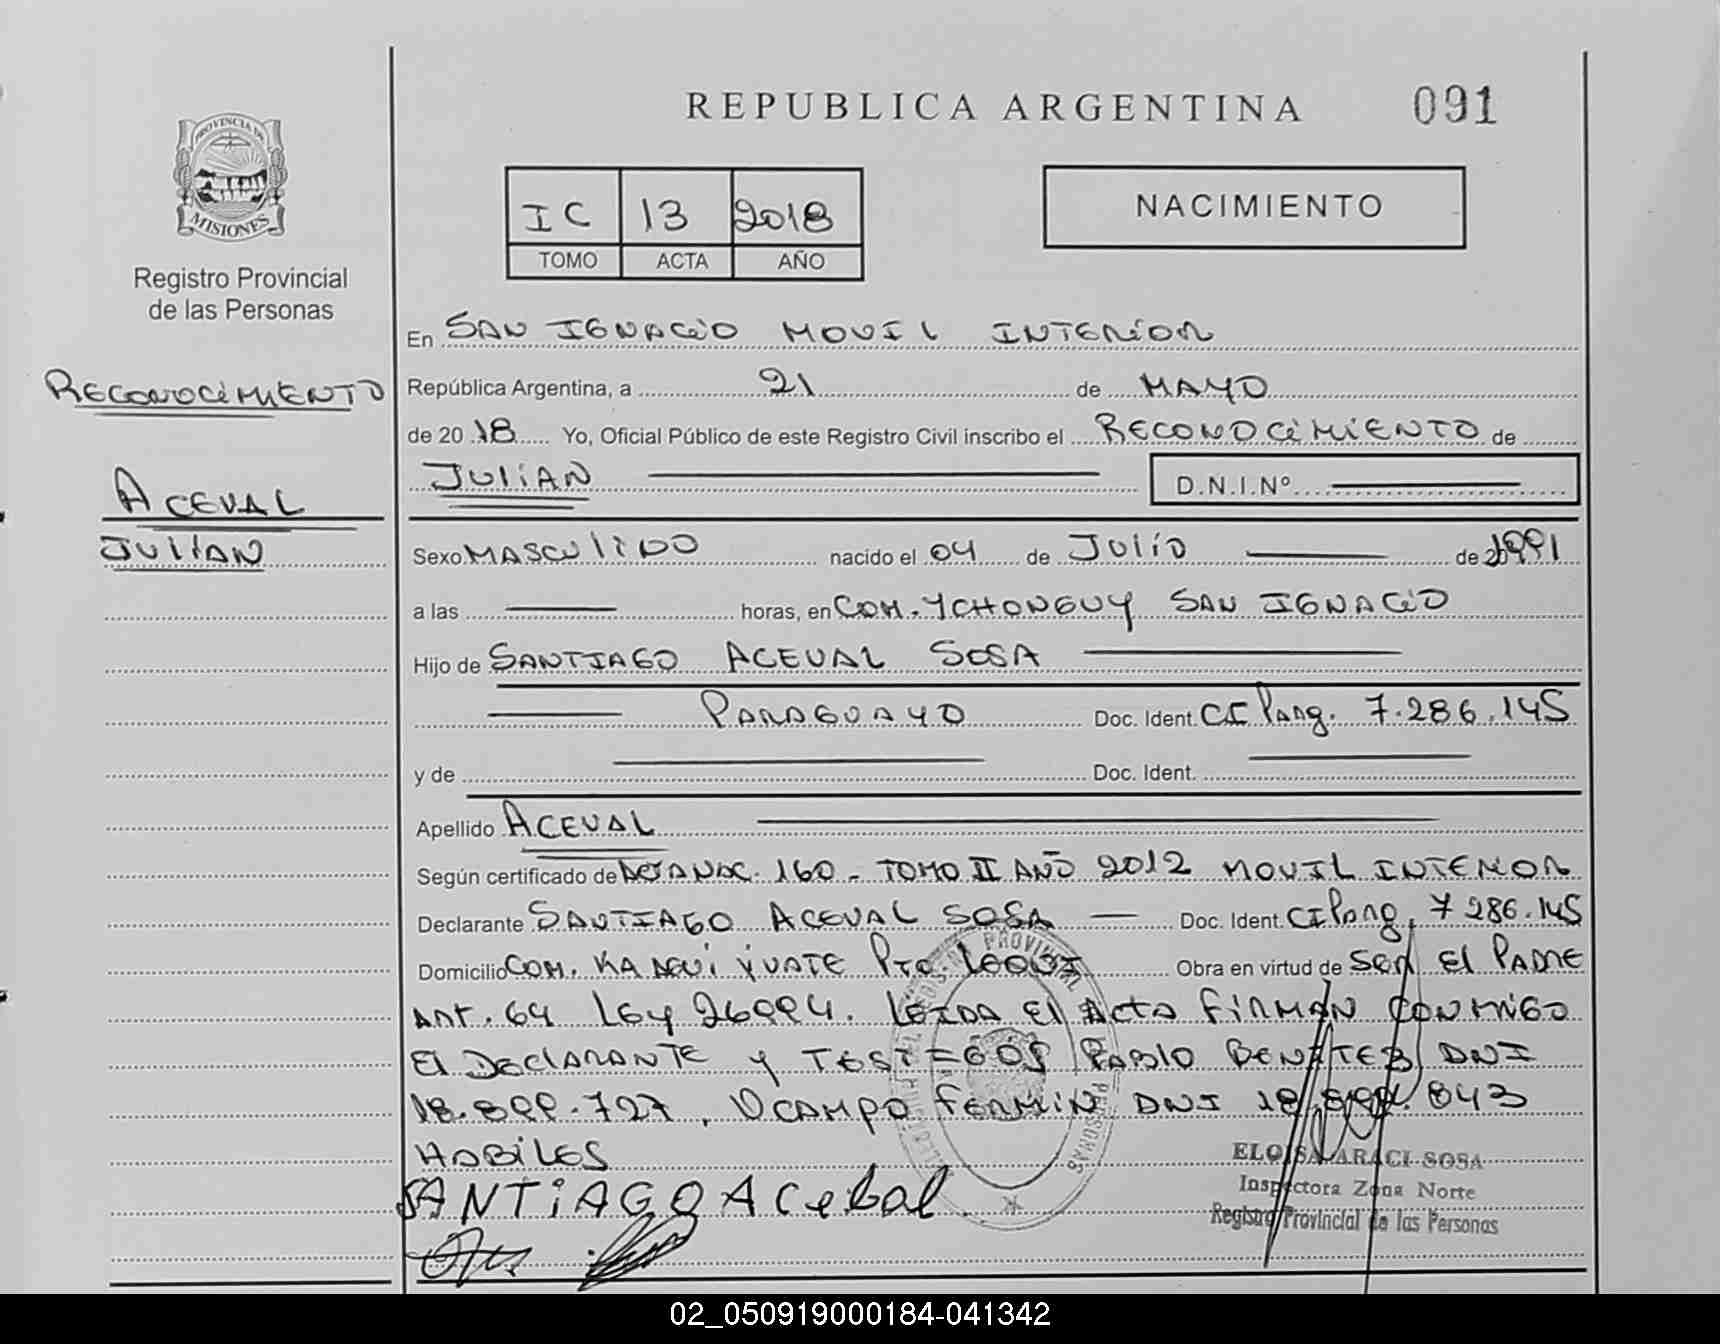 REPUBLICA ARGENTINA 091
PROVINCIA DE
MISIONES
Registro Provincial
de las Personas
IC 13 2018
TOMO ACTA AÑO
NACIMIENTO
RECONOCIMIENTO
ACEVAL
JULIAN
En SAN IGNACIO MOVIL INTERIOR
República Argentina, a 21 de MAYO
de 20 18 Yo, Oficial Público de este Registro Civil inscribo el RECONOCIMIENTO de
JULIAN D.N.I.Nº
Sexo MASCULINO nacido el 04 de JULIO de 1991
a las horas, en COM. YCHONGUY SAN IGNACIO
Hijo de SANTIAGO ACEVAL SOSA
PARAGUAYO Doc. Ident. CI Parg. 7.286.145
y de Doc. Ident.
Apellido ACEVAL
Según certificado de ACTA NAC. 160 - TOMO II AÑO 2012 MOVIL INTERIOR
Declarante SANTIAGO ACEVAL SOSA Doc. Ident. CI Parg. 7 286.145
Domicilio COM. Pto. Obra en virtud de SER El PADRE
ART. 64 Ley 26994. LEIDA El ACTA FIRMAN CONMIGO
El DEClARANTE y TESTIGOS PABlO BENITEZ DNI
18.899.727, OCAMPO FERMIN DNI 843
HABILES
SANTiAGO ACebal
ELOISA ARACI SOSA
Inspectora Zona Norte
Registro Provincial de las Personas
02_050919000184-041342